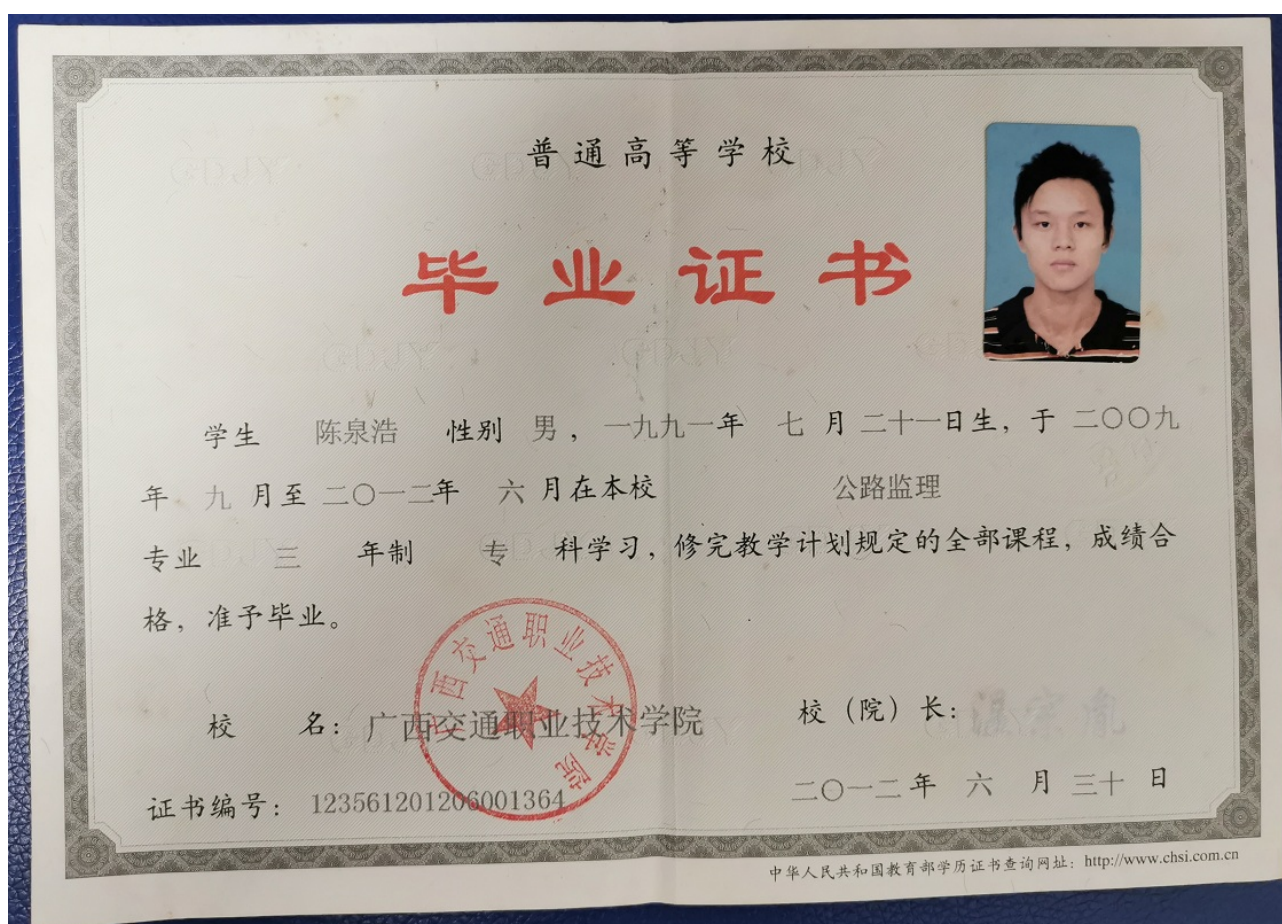 普通高等学校
毕业证书
学生 陈泉浩 性别 男，一九九一年 七 月 二十一日生，于 二〇〇九
年 九 月至 二〇一二年 六 月在本校 公路监理
专业 三 年制 专 科学习，修完教学计划规定的全部课程，成绩合
格，准予毕业。
广西交通职业技术学院
校 名：广西交通职业技术学院 校（院）长：温宗胤
证书编号：123561201206001364 二〇一二年 六 月 三十 日
中华人民共和国教育部学历证书查询网址：http://www.chsi.com.cn